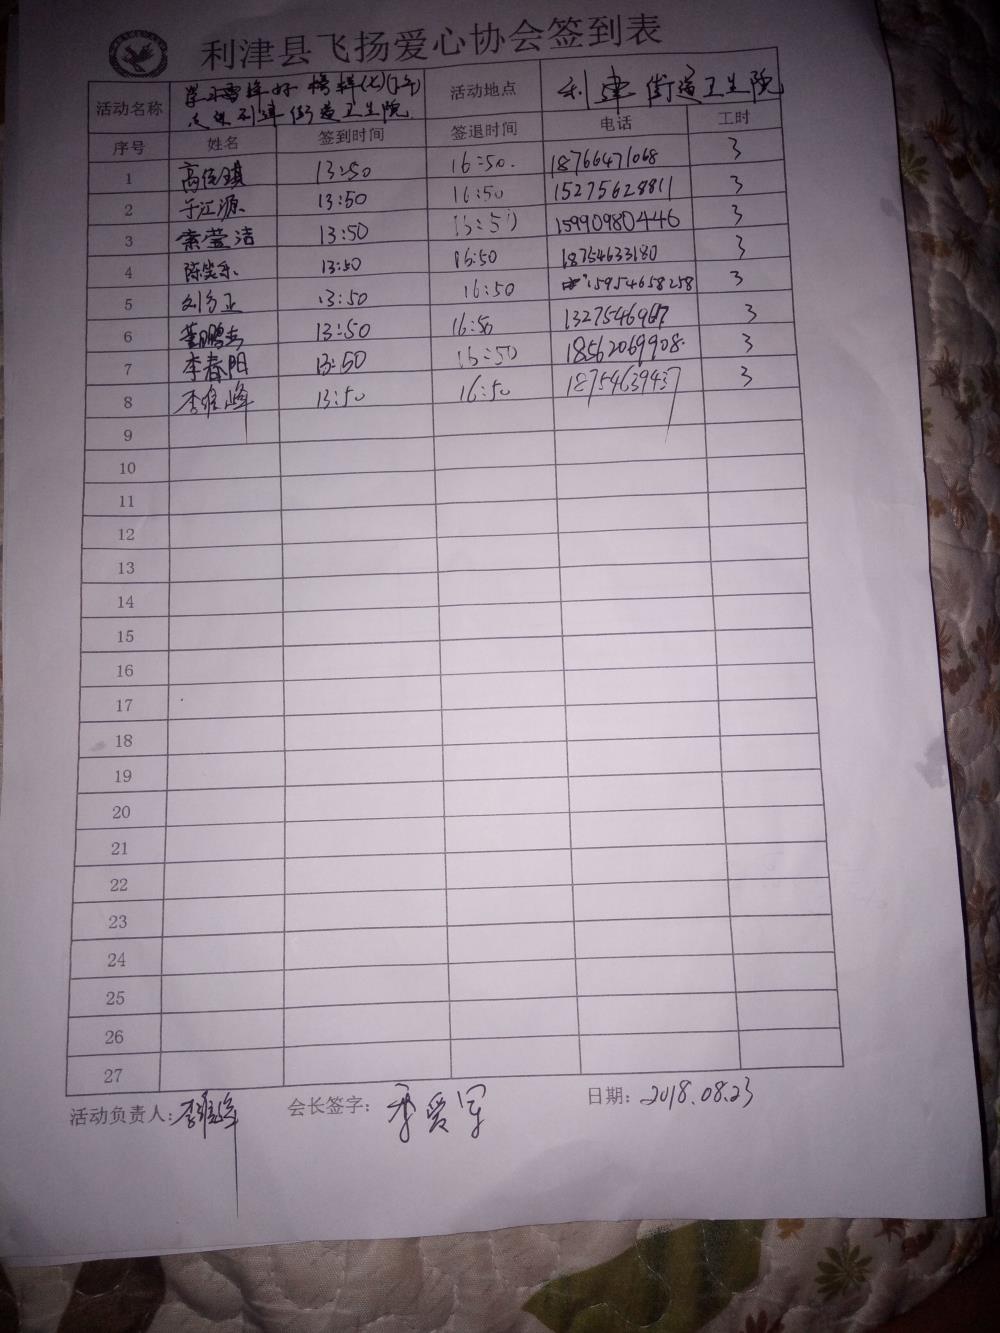 利津县飞扬爱心协会签到表
活动名称 学习雷锋好榜样(七)(下午) 走进利津街道卫生院 活动地点 利津街道卫生院
序号 姓名 签到时间 签退时间 电话 工时
1 高 琪 13:50 16:50. 18766471068 3
2 于江源 13:50 16:50 15275628811 3
3 索莹洁 13:50 15990980446 3
4 陈 乐 13:50 16:50 18754633180 3
5 刘 正 13:50 16:50 15954658258 3
6 董鹏 13:50 16:50 3
7 李春阳 13:50 16:50 18562069908 3
8 李维峰 13:50 16:50 18754639437 3
9
10
11
12
13
14
15
16
17
18
19
20
21
22
23
24
25
26
27
活动负责人: 李维峰 会长签字: 李爱军 日期: 2018.08.23